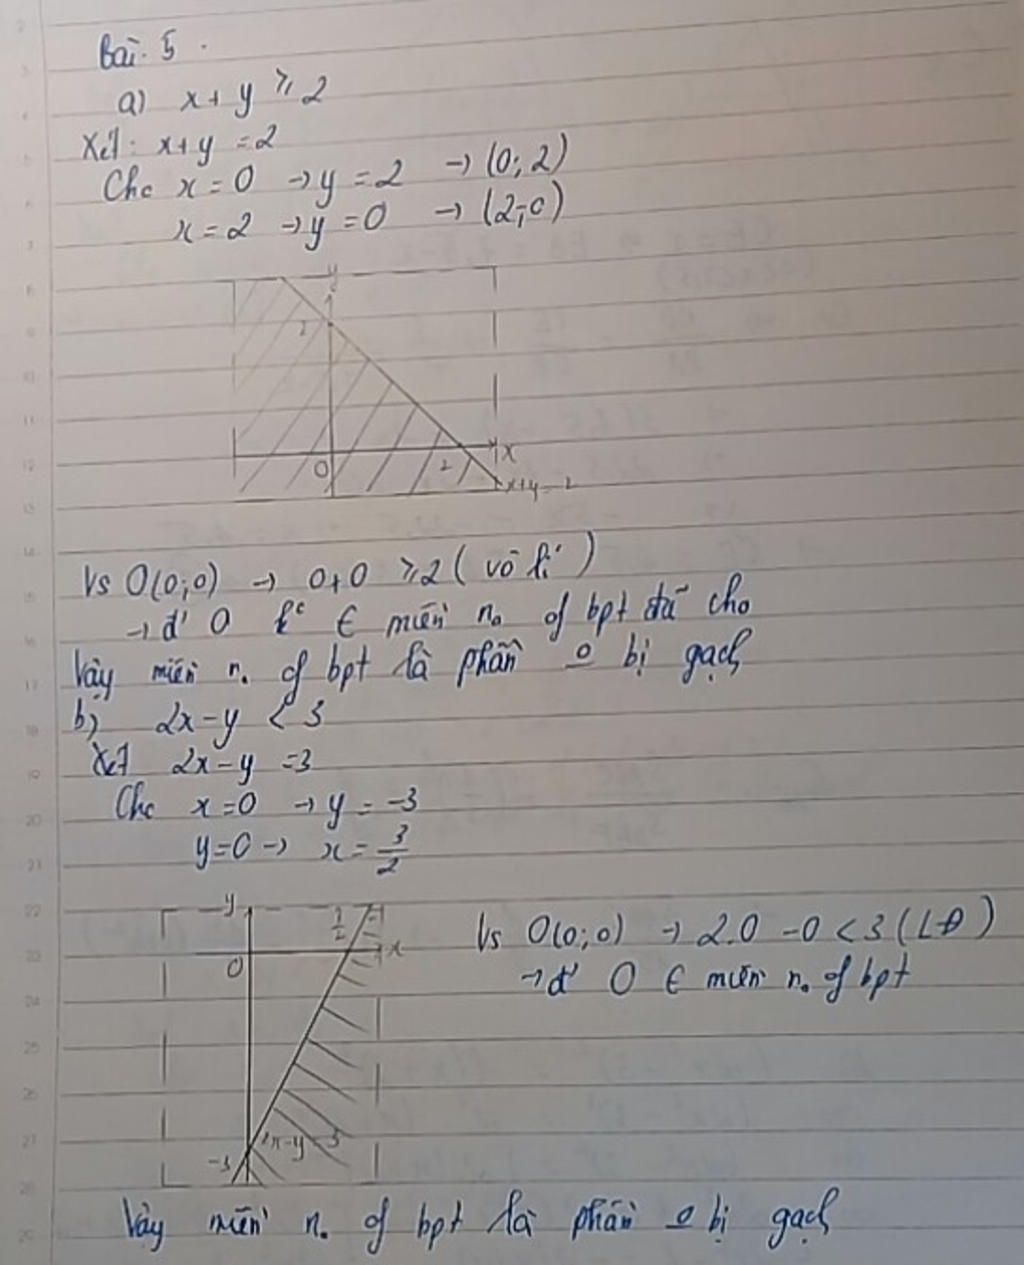 Bài 5.
a) x+y ≥ 2
Xét: x+y =2
Cho x=0 → y=2 → (0; 2)
x=2 → y=0 → (2; 0)
y
2
O
2
x
x+y=2
Vs O(0;0) → 0+0 ≥ 2 (vô lí)
→ đ' O k° ∈ miền n. of bpt đã cho
Vậy miền n. of bpt là phần o bị gạch
b) 2x-y < 3
Xét 2x-y =3
Cho x=0 → y = -3
y=0 → x = 3/2
y
3/2
x
O
-3
2x-y=3
Vs O(0;0) → 2.0 -0 <3 (LĐ)
→ đ' O ∈ miền n. of bpt
Vậy miền n. of bpt là phần o bị gạch